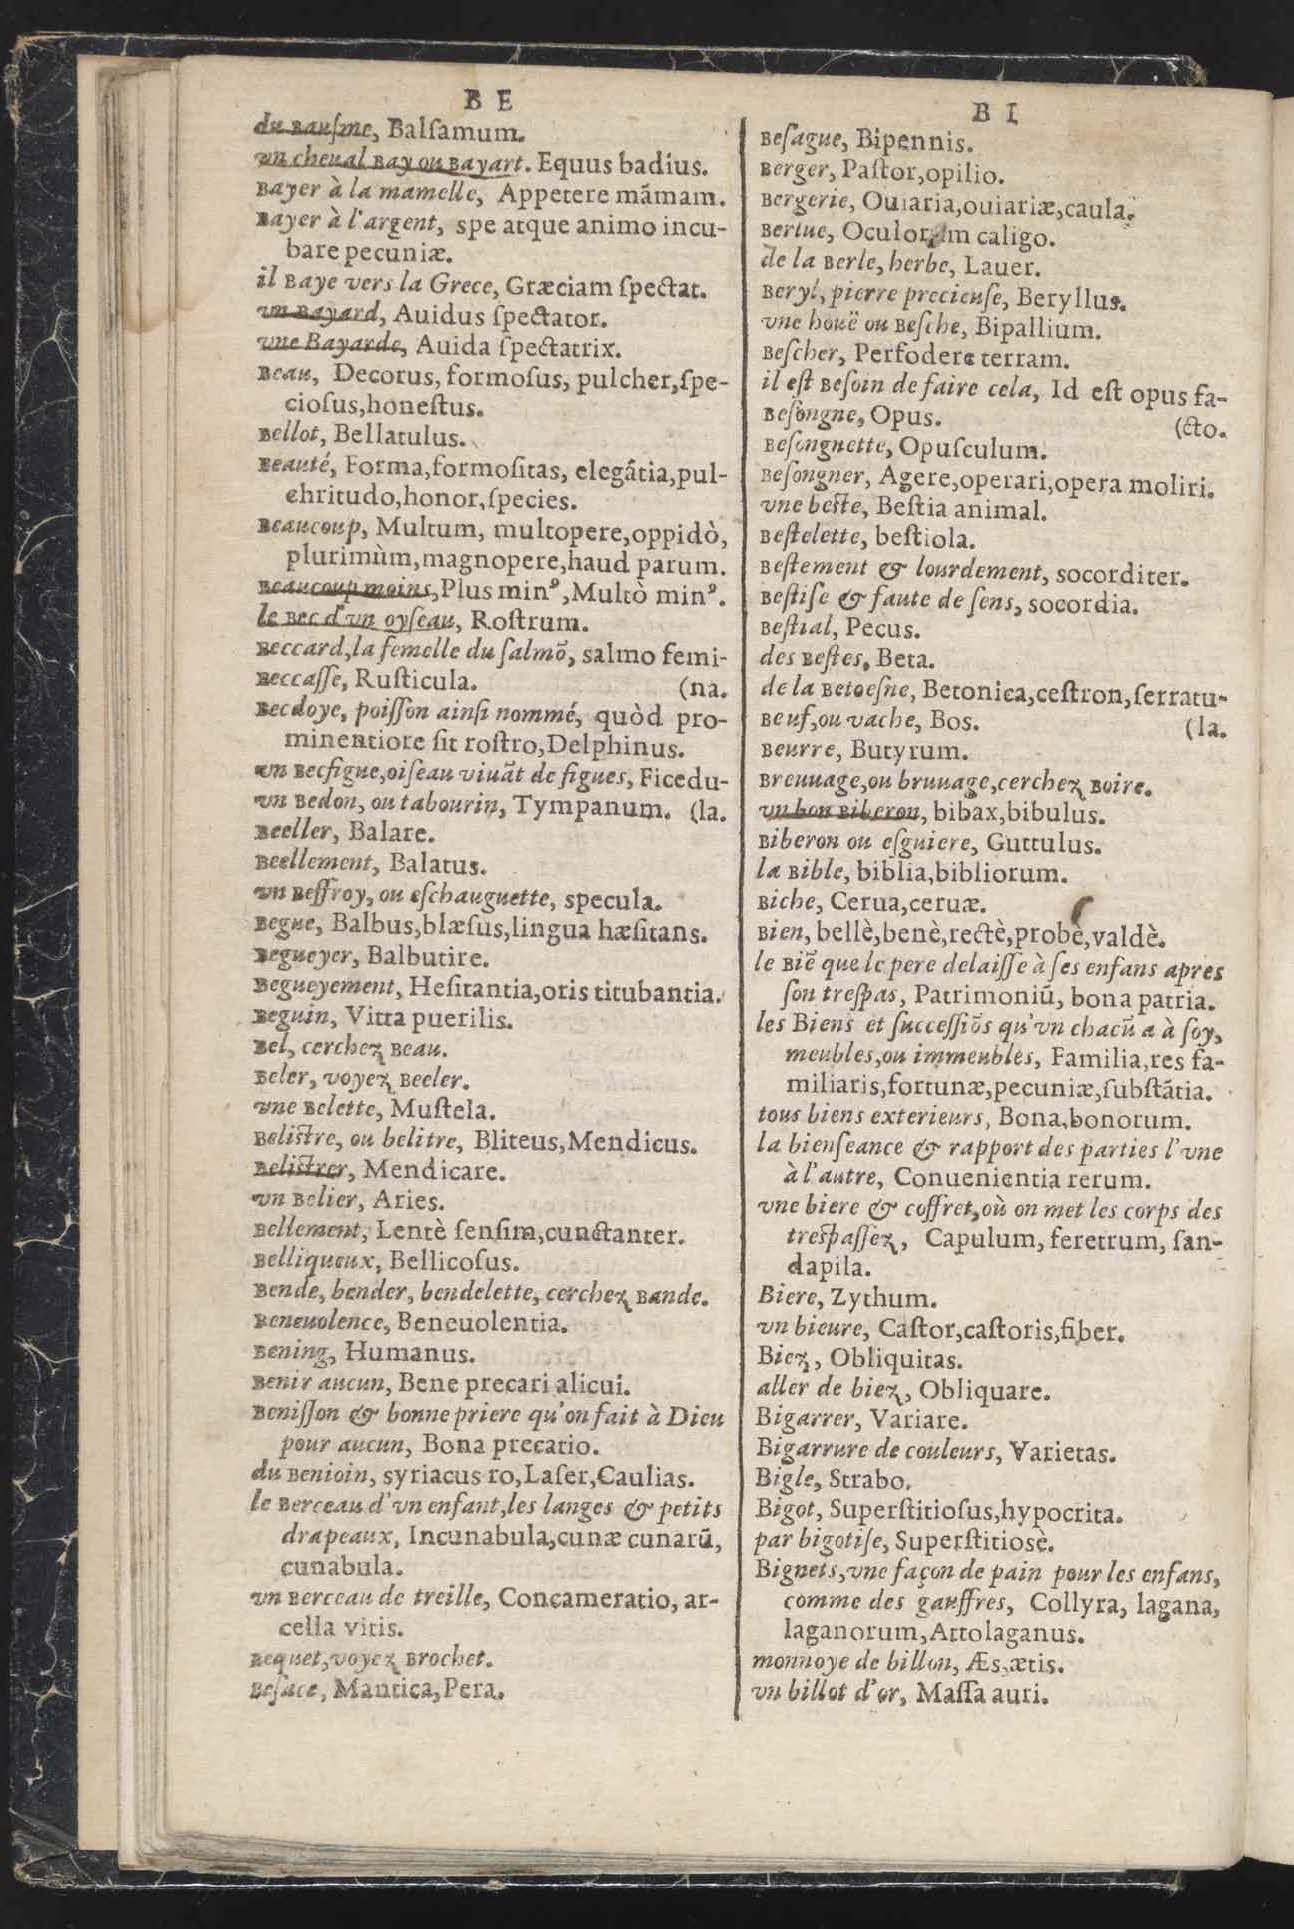 B E
du Bauſme, Balſamum.
vn cheual Bay ou Bayart. Equus badius.
Bayer à la mamelle, Appetere mãmam.
Bayer à l'argent, spe atque animo incu-
bare pecuniæ.
il Baye vers la Grece, Græciam ſpectat.
vn Bayard, Auidus ſpectator.
vne Bayarde, Auida ſpectatrix.
Beau, Decorus, formoſus, pulcher, ſpe-
cioſus, honeſtus.
Bellot, Bellatulus.
Beauté, Forma, formoſitas, elegãtia, pul-
chritudo, honor, ſpecies.
Beaucoup, Multum, multopere, oppidò,
plurimùm, magnopere, haud parum.
Beaucoup moins, Plus minꝰ, Multò minꝰ.
le Bec d'vn oyſeau, Roſtrum.
Beccard, la femelle du ſalmõ, salmo femi-
Beccaſſe, Ruſticula. (na.
Becdoye, poiſſon ainſi nommé, quòd pro-
minentiore ſit roſtro, Delphinus.
vn Becfigue, oiſeau viuãt de figues, Ficedu-
vn Bedon, ou tabourin, Tympanum. (la.
Beeller, Balare.
Beellement, Balatus.
vn Beffroy, ou eſchauguette, specula.
Begue, Balbus, blæſus, lingua hæſitans.
Begueyer, Balbutire.
Begueyement, Heſitantia, oris titubantia.
Beguin, Vitta puerilis.
Bel, cerchez Beau.
Beler, voyez Beeler.
vne Belette, Muſtela.
Beliſtre, ou belitre, Bliteus, Mendicus.
Beliſtrer, Mendicare.
vn Belier, Aries.
Bellement, Lentè ſenſim, cunctanter.
Belliqueux, Bellicoſus.
Bende, bender, bendelette, cerchez Bande.
Beneuolence, Beneuolentia.
Bening, Humanus.
Benir aucun, Bene precari alicui.
Beniſſon & bonne priere qu'on fait à Dieu
pour aucun, Bona precatio.
du Benioin, syriacus ro, Laſer, Caulias.
le Berceau d'vn enfant, les langes & petits
drapeaux, Incunabula, cunæ cunarũ,
cunabula.
vn Berceau de treille, Concameratio, ar-
cella vitis.
Bequet, voyez Brochet.
Beſace, Mantica, Pera.
B I
Beſague, Bipennis.
Berger, Paſtor, opilio.
Bergerie, Ouiaria, ouiariæ, caula.
Berlue, Oculorum caligo.
de la Berle, herbe, Lauer.
Beryl, pierre precieuſe, Beryllus.
vne houë ou Beſche, Bipallium.
Beſcher, Perfodere terram.
il eſt Beſoin de faire cela, Id eſt opus fa-
Beſongne, Opus. (cto.
Beſongnette, Opuſculum.
Beſongner, Agere, operari, opera moliri.
vne beſte, Beſtia animal.
Beſtelette, beſtiola.
Beſtement & lourdement, socorditer.
Beſtiſe & faute de ſens, socordia.
Beſtial, Pecus.
des Beſtes, Beta.
de la Betoeſne, Betonica, ceſtron, ſerratu-
Beuf, ou vache, Bos. (la.
Beurre, Butyrum.
Breuuage, ou bruuage, cerchez Boire.
vn bon Biberon, bibax, bibulus.
Biberon ou eſguiere, Guttulus.
la Bible, biblia, bibliorum.
Biche, Cerua, ceruæ.
Bien, bellè, benè, rectè, probè, valdè.
le Biẽ que le pere delaiſſe à ſes enfans apres
ſon treſpas, Patrimoniũ, bona patria.
les Biens et ſucceſſiõs qu'vn chacũ a à ſoy,
meubles, ou immeubles, Familia, res fa-
miliaris, fortunæ, pecuniæ, ſubſtãtia.
tous biens exterieurs, Bona, bonorum.
la bienſeance & rapport des parties l'vne
à l'autre, Conuenientia rerum.
vne biere & coffret, où on met les corps des
treſpaſſez, Capulum, feretrum, ſan-
dapila.
Biere, Zythum.
vn bieure, Caſtor, caſtoris, fiber.
Biez, Obliquitas.
aller de biez, Obliquare.
Bigarrer, Variare.
Bigarrure de couleurs, Varietas.
Bigle, Strabo.
Bigot, Superſtitioſus, hypocrita.
par bigotiſe, Superſtitiosè.
Bignets, vne façon de pain pour les enfans,
comme des gauffres, Collyra, lagana,
laganorum, Attolaganus.
monnoye de billon, Æs, ætis.
vn billot d'or, Maſſa auri.